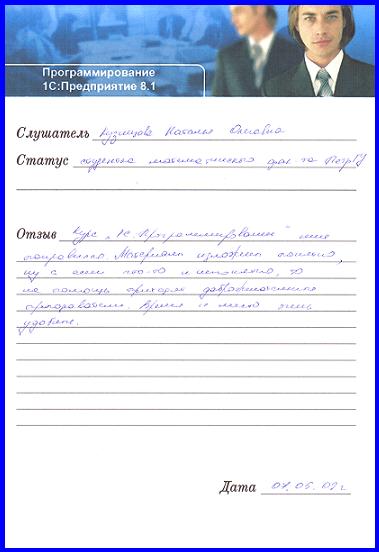 Программирование
1С:Предприятие 8.1
Слушатель Кузнецова Наталья Олеговна
Статус студентка математического фак-та ПетрГУ
Отзыв Курс "1С:Программирование" мне
понравился. Материал изложен понятно,
ну а если что-то и непонятно, то
на помощь приходят доброжелательные
преподаватели. Время и место очень
удобные.
Дата 07.05.02 г.